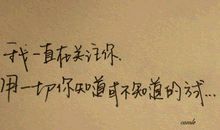 我一直在关注你.
用一切你知道或不知道的方式...
camile